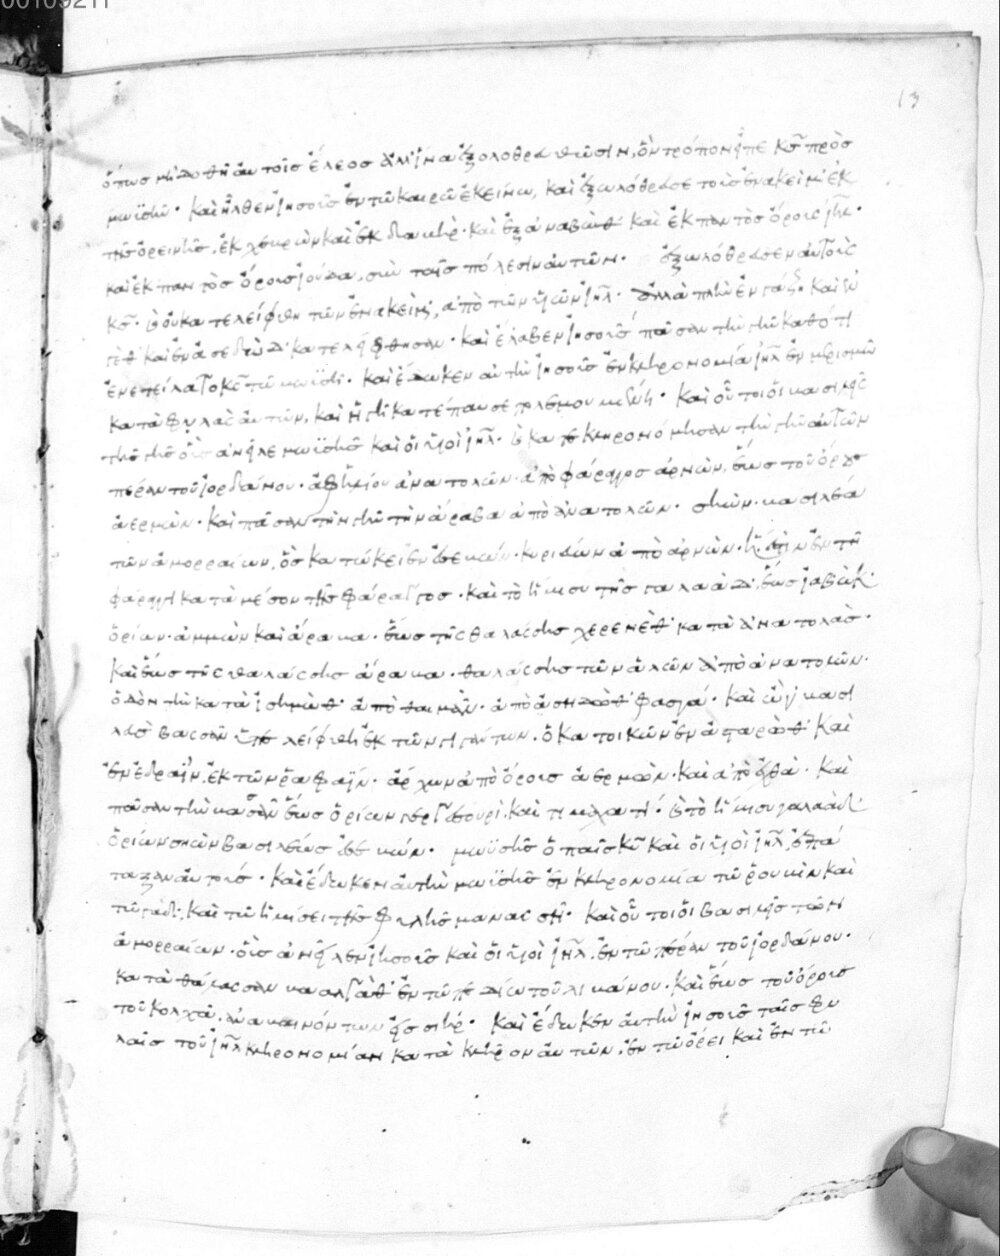 00109211
13
ὅπως μὴ δοθῆ αὐτοῖς ἔλεος ἀλλ' ἵνα ἐξολοθρευθῶσιν, ὃν τρόπον εἶπε κς πρὸς
μωϊσῆν· καὶ ἦλθεν ἰησοῦς ἐν τῶ καιρῶ ἐκείνω, καὶ ἐξωλόθρευσε τοὺς ἐνακεὶμ ἐκ
τῆς ὀρεινῆς, ἐκ χευρὼν καὶ ἐκ δαυὴρ· καὶ ἐξ ἀναβὼθ καὶ ἐκ παντὸς ὄρους ιηλ·
καὶ ἐκ παντὸς ὄρους ἰούδα, σὺν ταῖς πόλεσιν αὐτῶν· ἐξωλόθρευσεν αὐτοὺς
κς· οὐ κατελείφθη τῶν ἐνακεὶμ, ἀπὸ τῶν υἱῶν ιηλ· ἀλλὰ πλὴν ἐν γάζη καὶ ἐν
γὲθ καὶ ἐν ἀσεδὼδ κατελείφθησαν· καὶ ἔλαβεν ἰησοῦς πᾶσαν τὴν γῆν καθότι
ἐνετείλατο κς τῶ μωϊσῆ· καὶ ἔδωκεν αὐτὴν ἰησοῦς ἐν κληρονομία ιηλ ἐν μερισμῶ
κατὰ φυλὰς αὐτῶν, καὶ ἡ γῆ κατέπαυσε πολεμουμένη· καὶ οὗτοι οἱ βασιλεῖς
τῆς γῆς οὓς ἀνεῖλε μωϊσῆς καὶ οἱ υἱοὶ ιηλ· κατεκληρονόμησαν τὴν γῆν αὐτῶν
πέραν τοῦ ἰορδάνου· ἀφ' ἡλίου ἀνατολῶν· ἀπὸ φάραγγος ἀρνὼν, ἕως τοῦ ὄρους
ἀερμὼν· καὶ πᾶσαν τὴν γῆν τὴν ἄραβα ἀπὸ ἀνατολῶν· σηὼν βασιλέα
τῶν ἀμορραίων, ὃς κατώκει ἐν ἐσεβών· κυριεύων ἀπὸ ἀρνὼν· ἥ ἐστιν ἐν τῆ
φάραγγι κατὰ μέσον τῆς φάραγγος· καὶ τὸ ἥμισυ τῆς γαλαὰδ ἕως ἰαβὼκ·
ὅριων ἀμμὼν καὶ ἄραβα· ἕως τῆς θαλάσσης χερενὲθ κατὰ ἀνατολὰς·
καὶ ἕως τῆς θαλάσσης ἄραβα· θαλάσσης τῶν ἁλῶν ἀπὸ ἀνατολῶν·
ὁδὸν τὴν κατὰ ἰσημὼθ ἀπὸ θαιμὰν· ἀπὸ ἀσηδὼθ φασγά· καὶ ὢγ βασι
λεὺς βασὰν ὑπελείφθη ἐκ τῶν γιγάντων· ὁ κατοικῶν ἐν ἀσταρὼθ καὶ
ἐν ἐδραΐν, ἐκ τῶν ῥαφαΐν· ἄρχων ἀπὸ ὄρους ἀερμὼν· καὶ ἀπὸ ἐλχὰ· καὶ
πᾶσαν τὴν βασὰν ἕως ὁρίων γεργεσουρὶ καὶ τὴν μαχατί· τὸ ἥμισυ γαλαάδ·
ὁρίων σηὼν βασιλέως ἐσεβών· μωϋσῆς ὁ παῖς κυ καὶ οἱ υἱοὶ ιηλ ἐπά
ταξαν αὐτούς· καὶ ἔδωκεν αὐτὴν μωϊσῆς ἐν κληρονομία τῶ ῥουβὶν καὶ
τῶ γάδ, καὶ τῶ ἡμίσει τῆς φυλῆς μανασσῆ· καὶ οὗτοι οἱ βασιλεῖς τῶν
ἀμορραίων· οὓς ἀνεῖλεν ἰησοῦς καὶ οἱ υἱοὶ ιηλ, ἐν τῶ πέραν τοῦ ἰορδάνου·
κατὰ θάλασσαν βααλγὰδ ἐν τῶ πεδίω τοῦ λιβάνου· καὶ ἕως τοῦ ὄρους
τοῦ κολχὰ, ἀναβαινόντων εἰς σηίρ· καὶ ἔδωκεν αὐτὴν ἰησοῦς ταῖς φυ
λαῖς τοῦ ιηλ κληρονομίαν κατὰ κλῆρον αὐτῶν, ἐν τῶ ὄρει καὶ ἐν τῶ